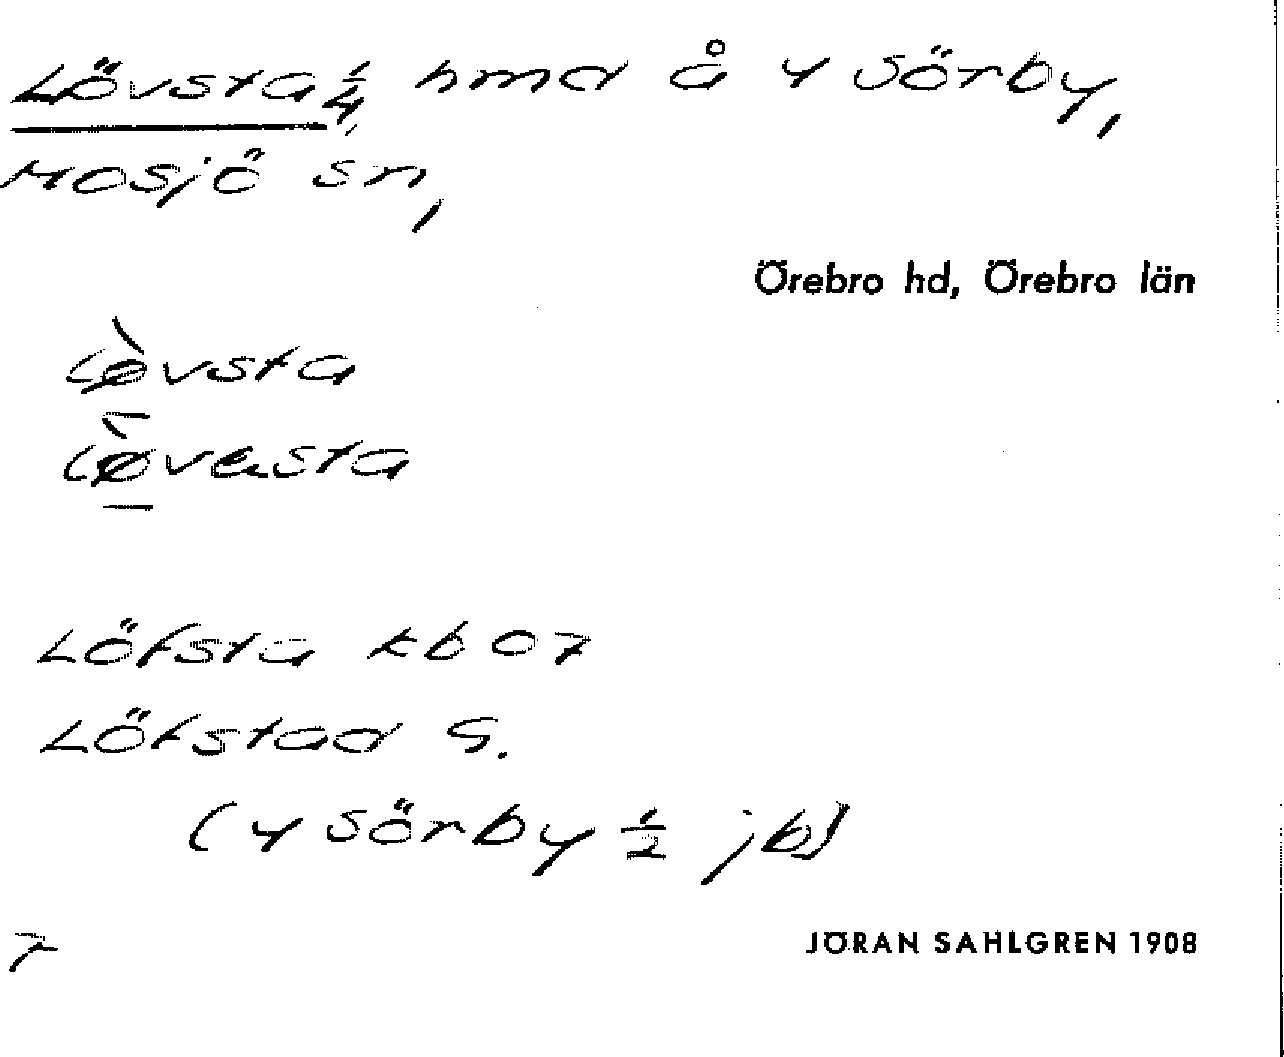 Lövsta 1/4, hmd å 4 Sörby,
Mosjö sn,
Örebro hd, Örebro län
lø̀vsta
lø̀vasta
Löfsta kb 07
Löfstad G.
(4 Sörby 1/2 jb)
7
JÖRAN SAHLGREN 1908